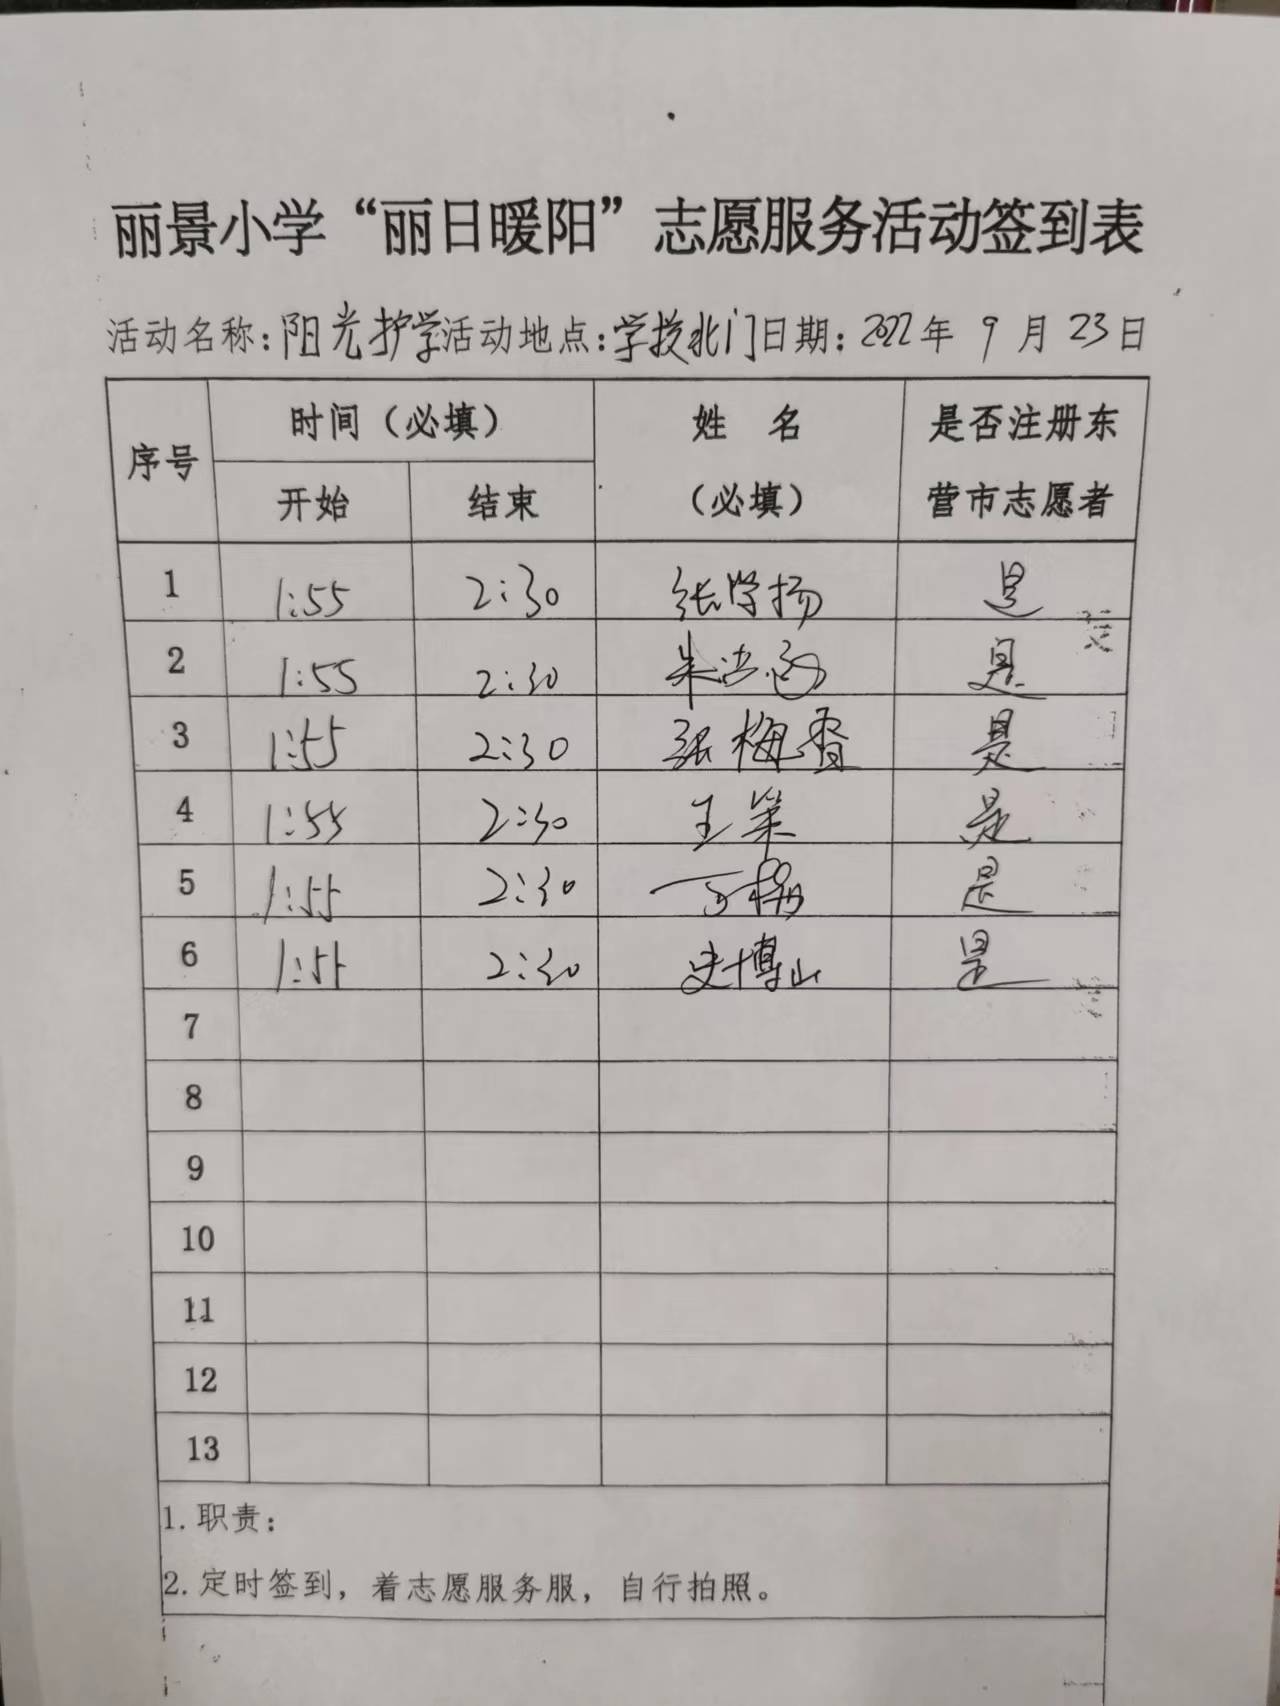 丽景小学“丽日暖阳”志愿服务活动签到表
活动名称：阳光护学 活动地点：学校北门 日期：2022年 9月 23日
序号 时间（必填） 姓 名（必填） 是否注册东营市志愿者
开始 结束
1 1:55 2:30 张学扬 是
2 1:55 2:30 朱 是
3 1:55 2:30 张梅香 是
4 1:55 2:30 王策 是
5 1:55 2:30 是
6 1:55 2:30 史博山 是
7
8
9
10
11
12
13
1. 职责：
2. 定时签到，着志愿服务服，自行拍照。